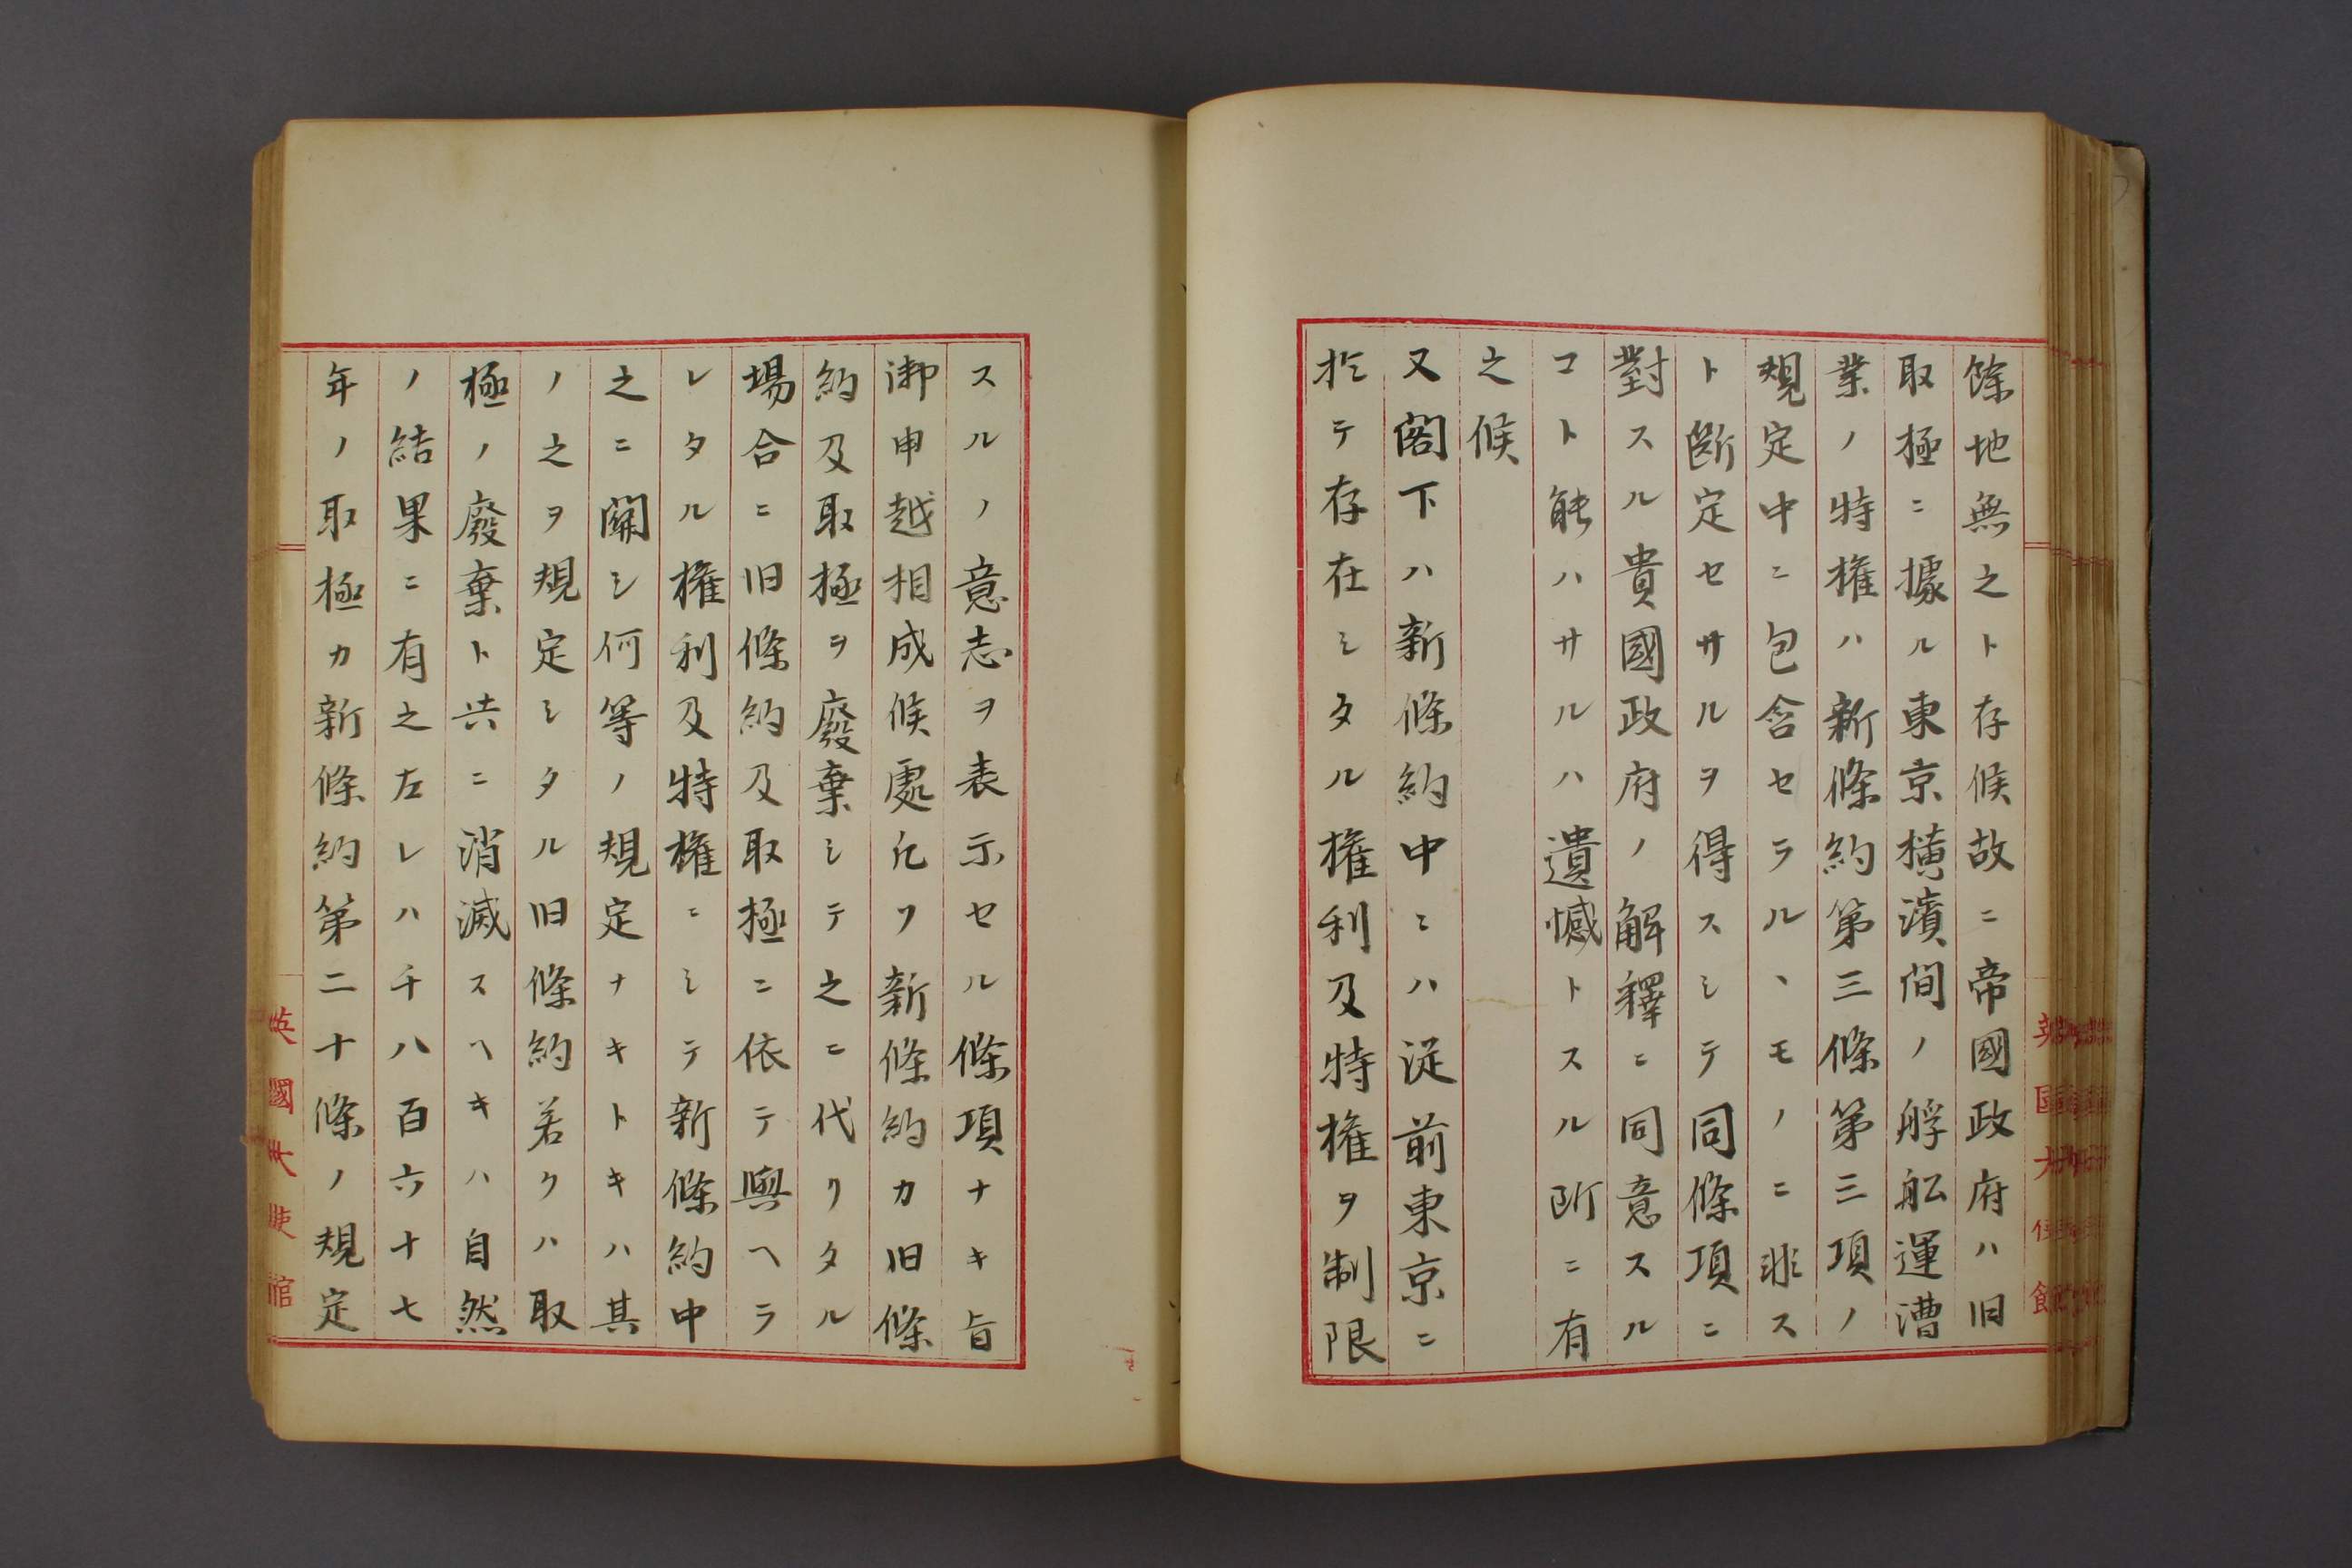 餘地無之ト存候故ニ帝國政府ハ旧
取極ニ據ル東京橫濱間ノ艀舩運漕
業ノ特権ハ新條約第三條第三項ノ
規定中ニ包含セラルヽモノニ非ス
ト断定セサルヲ得スシテ同條項ニ
對スル貴國政府ノ解釋ニ同意スル
コト能ハサルハ遺憾トスル所ニ有
之候
又閣下ハ新條約中ニハ従前東京ニ
於テ存在シタル権利及特権ヲ制限
スルノ意志ヲ表示セル條項ナキ旨
御申越相成候處凡ソ新條約カ旧條
約及取極ヲ廢棄シテ之ニ代リタル
場合ニ旧條約及取極ニ依テ與ヘラ
レタル権利及特権ニシテ新條約中
之ニ関シ何等ノ規定ナキトキハ其
ノ之ヲ規定シタル旧條約若クハ取
極ノ廢棄ト共ニ消滅スヘキハ自然
ノ結果ニ有之左レハ千八百六十七
年ノ取極カ新條約第二十條ノ規定
英國大使館